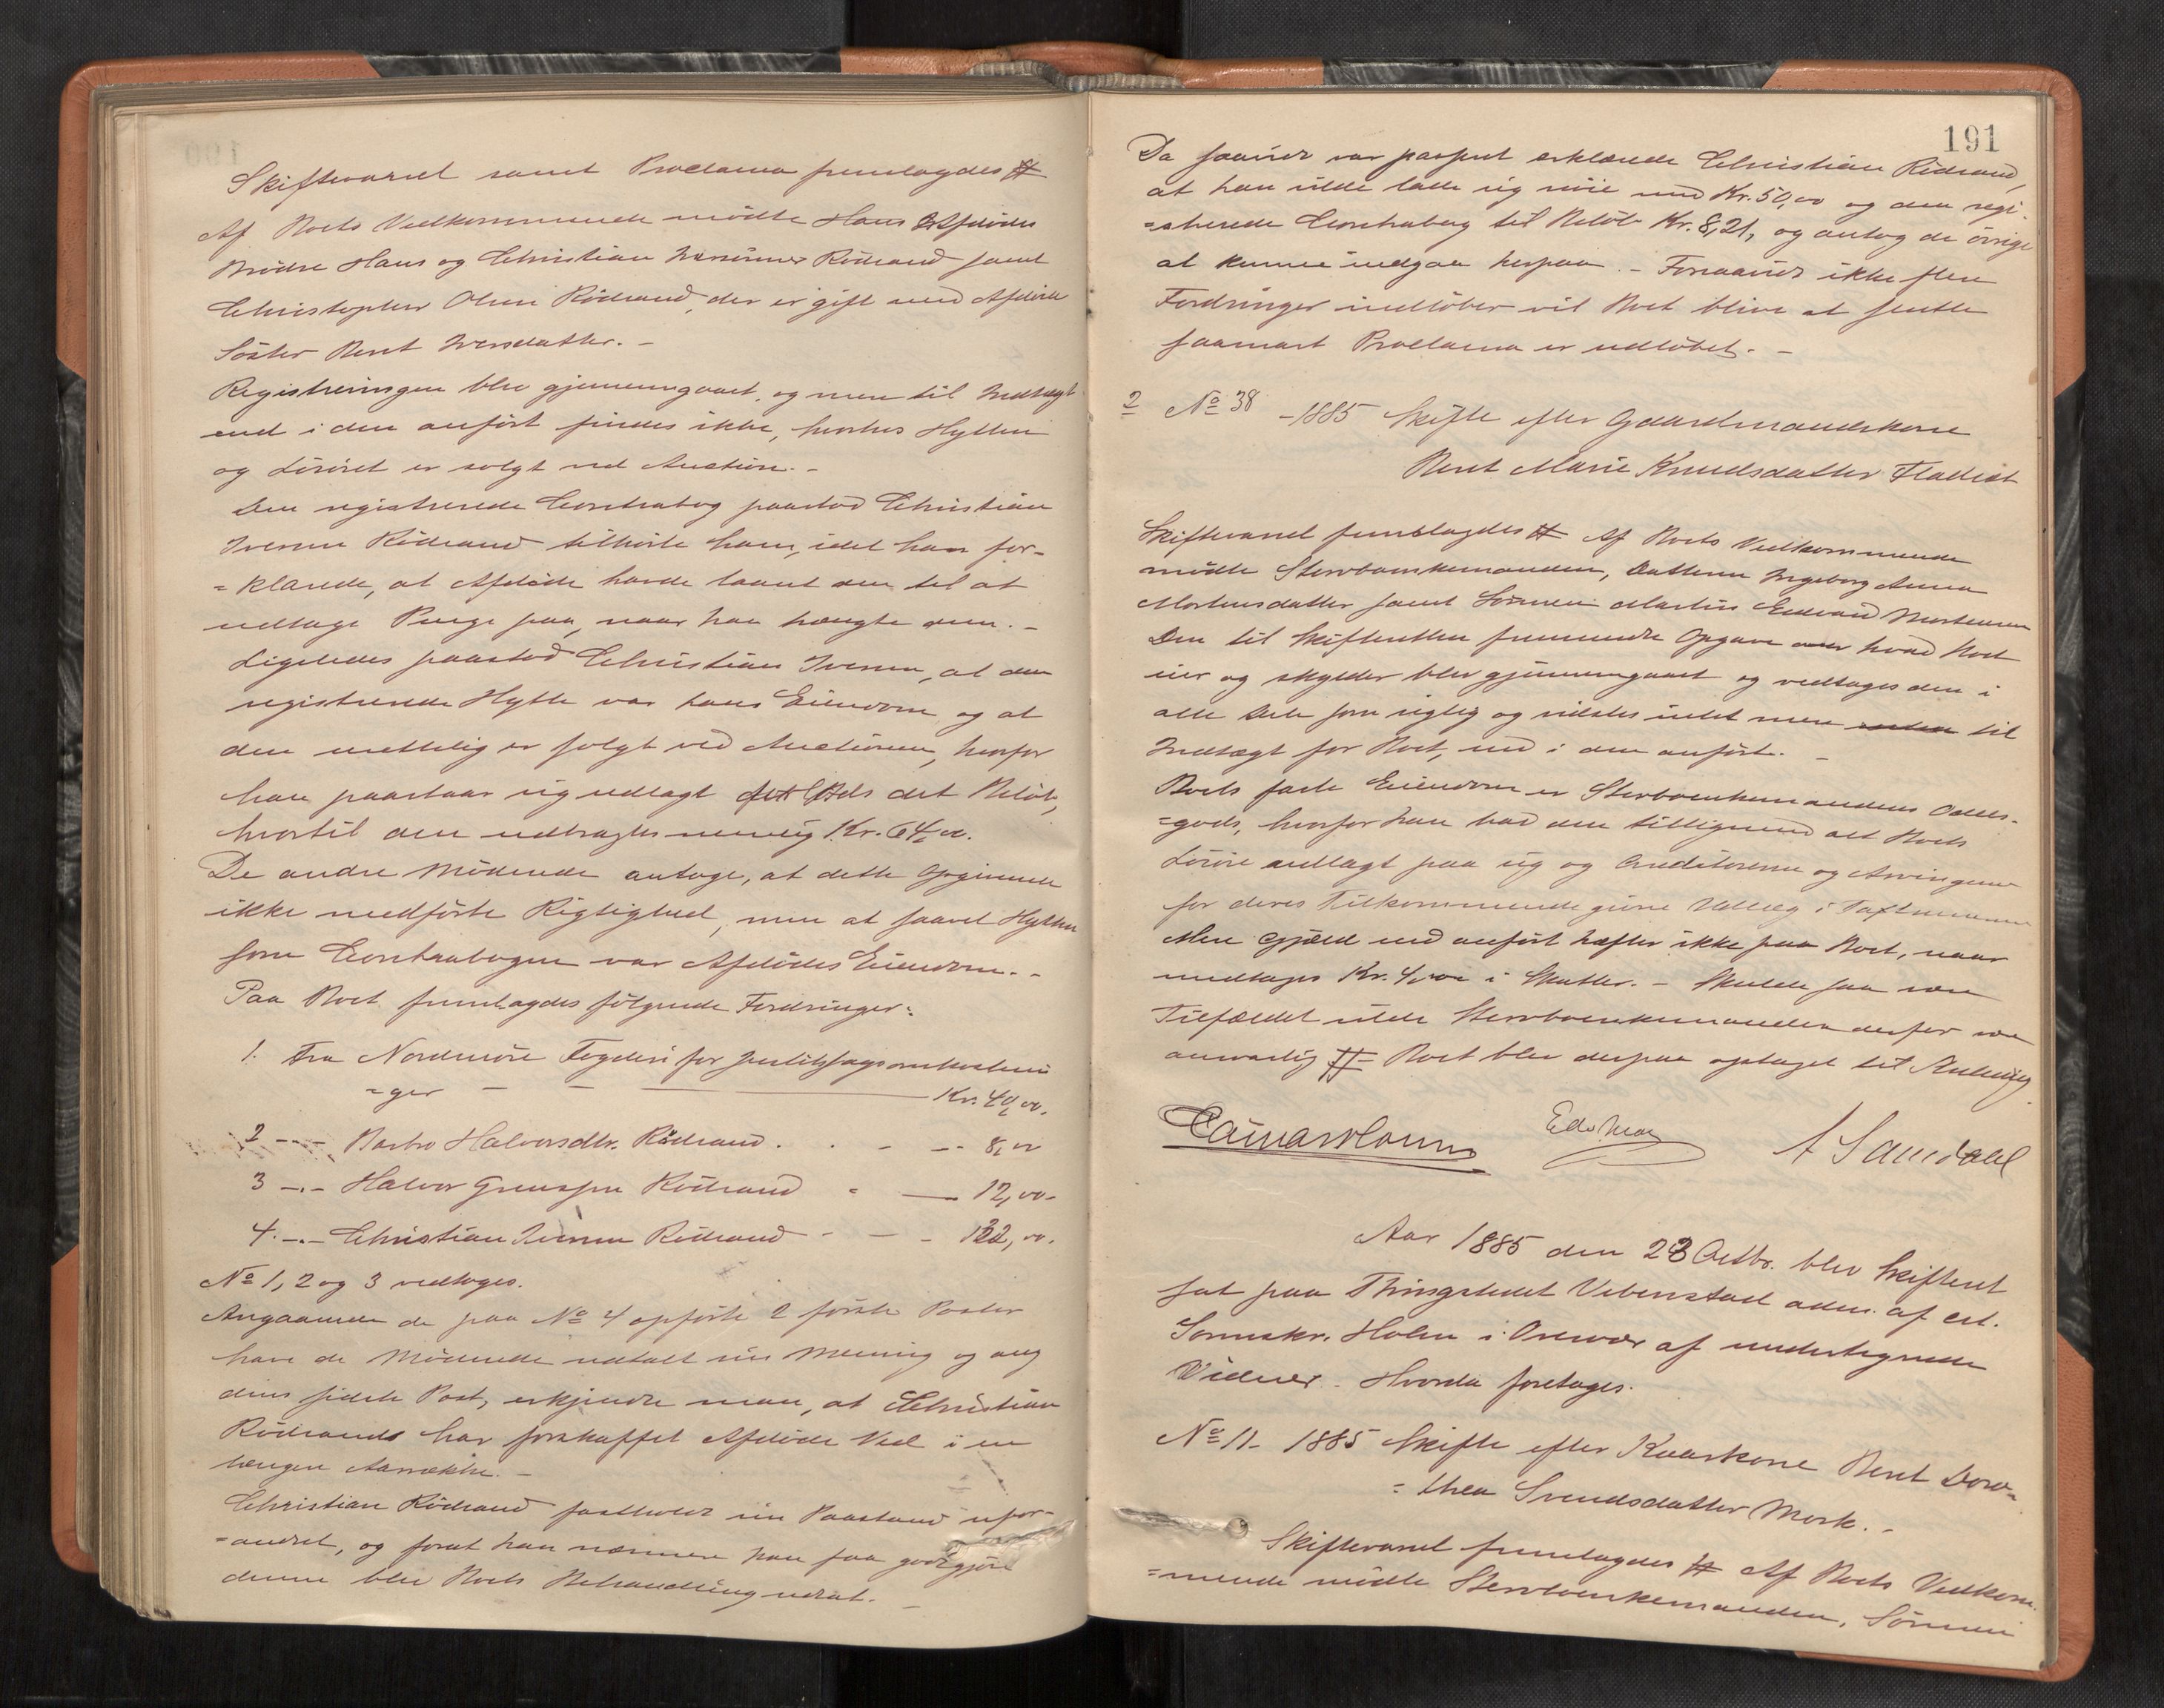 Skiftevarsel samt Proclama fremlagdes #
Af Boets Vedkommende mödte Hans Afdödes
Brödre Hans og Christian Iversönner Rödsand samt
Christopher Olsen Rödsand, der er gift med Afdöde
Söster Berit Iversdatter. -
Registreringen blev gjennemgaaet, og mere til Indtægt
end i den anfört findes ikke, hvorhos Hytten
og Lösöret er solgt ved Auction. -
Den registrerede Contrabog paastod Christian
Iversen Rödsand tilhörte ham, idet han for-
= klarede, at Afdöde havde laant den til at
udtage Penge paa, naar han trængte dem. -
Ligeledes paastod Christian Iversen, at den
registrerede Hytte var hans Eiendom og at
den urettelig er solgt ved Auctionen, hvorfor
han paastaar sig udlagt det Belöb,
hvortil den udbragtes nemlig Kr. 64,00.
De andre Mödende antoge, at dette Opgivende
ikke medförte Rigtighed, men at saavel Hytten
som Contrabogen var Afdödes Eiendom. -
Paa Boet fremlagdes fölgende Fordringer:
1. Fra Nordmöre Fogderi for Justitssagsomkostnin
=ger - - Kr. 40,00.
2 -.- Barbro Halvorsdtr. Rödsand . . - - 8,00
3 -.- Halvor Rödsand - 12,00-
4. -.- Christian Iversen Rödsand - - - 132,00.
No 1, 2 og 3 vedtoges.
Angaaende de paa No 4 opförte 2 förste Poster
have de Mödende udtalt sin Mening og ang
dens sidste Post, erkjendte man, at Christian
Rödsand har forskaffet Afdöde Ved i en
længere Aarrække. -
Christian Rödsand fastholdt sin Paastand ufor-
=andret, og forat han nærmere kan faa godtgjöre
denne blev Boets Behandling udsat. -
191
Da saavidt var passeret erklærede Christian Rödsand,
at han vilde lade sig nöie med Kr. 50,00 og den regi-
=strerede Contrabog til Belöb Kr. 8,21, og antog de övrige
at kunne indgaa herpaa. - Forsaavidt ikke flere
Fordringer indlöber vil Boet blive at slutte
saasnart Proclama er udlöbet. -
2 No 38 - 1885 Skifte efter Gaardmandskone
Berit Marie Knudsdatter Fladset
Skiftevarsel fremlagdes # Af Boets Vedkommende
mödte Stervboenkemanden, Datteren Ingeborg Anna
Mortensdatter samt Sönnen Martin Edvard Mortensen
Den til Skifteretten fremsendte Opgave over hvad Boet
eier og skylder blev gjennemgaaet og vedtoges den i
alle Dele som rigtig og vidstes intet mere til
Indtægt for Boet, end i den anfört. -
Boets faste Eiendom er Stervboenkemandens Odels-
=gods, hvorfor han bad den tilligemed alt Boets
Lösöre udlagt paa sig og Creditorerne og Arvingerne
for deres Tilkommende givne Udlæg i Taxtsummerne
Mere Gjæld end anfört hæfter ikke paa Boet, naar
undtages Kr. 4,00 i Skatter. - Skulde saa være
Tilfældet vilde Stervboenkemanden derfor være
ansvarlig # Boet blev derpaa optaget til Slutning.
A Sanddahl
Aar 1885 den 23 Octbr. blev Skifteret
sat paa Thingstedet Vebenstad adm. af cst.
Sorenskr. Holm i Overvær af undertegnede
Vidner. Hvorda foretoges.
No 11 - 1885 Skifte efter Kaarkone Berit Doro-
=thea Svendsdatter Mork. -
Skiftevarsel fremlagdes # Af Boets Vedkom-
=mende mödte Stervboenkemanden, Sönnen